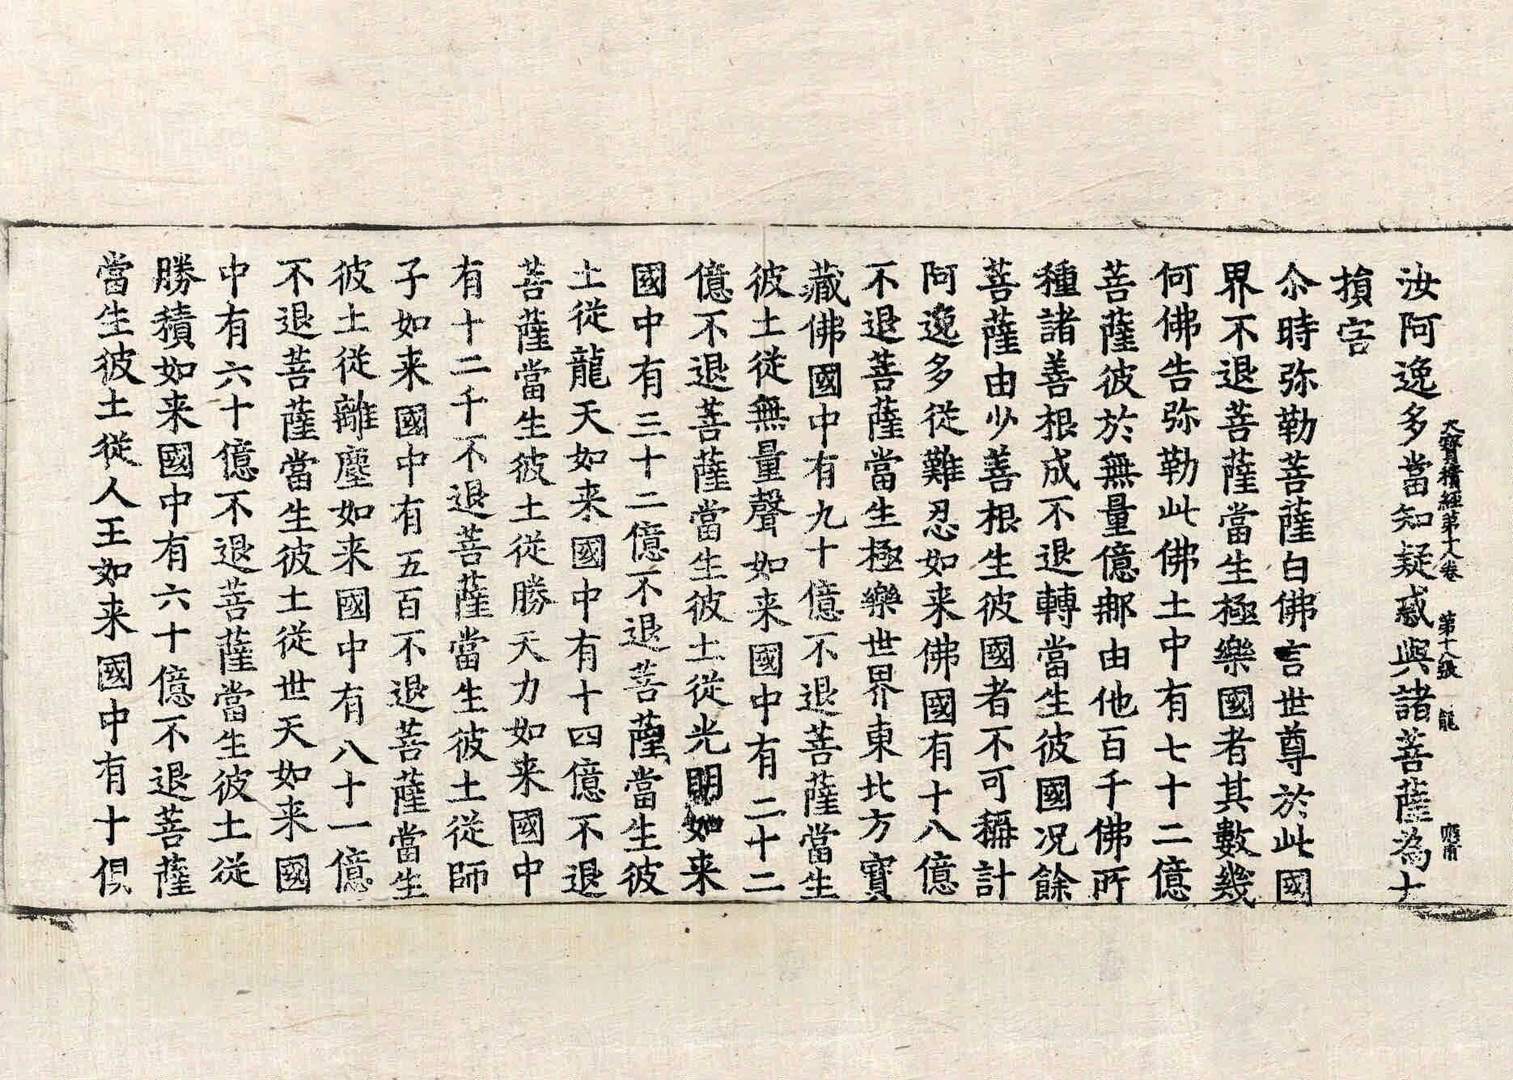 汝阿逸多當知疑惑與諸菩薩為大
大寶積經第十八卷 第十八張 龍
損害
尒時弥勒菩薩白佛言世尊於此國
界不退菩薩當生極樂國者其數幾
何佛告弥勒此佛土中有七十二億
菩薩彼於無量億那由他百千佛所
種諸善根成不退轉當生彼國况餘
菩薩由少善根生彼國者不可稱計
阿逸多從難忍如来佛國有十八億
不退菩薩當生極樂世界東北方寶
藏佛國中有九十億不退菩薩當生
彼土從無量聲如来國中有二十二
億不退菩薩當生彼土從光明如来
國中有三十二億不退菩薩當生彼
土從龍天如来國中有十四億不退
菩薩當生彼土從勝天力如来國中
有十二千不退菩薩當生彼土從師
子如来國中有五百不退菩薩當生
彼土從離塵如来國中有八十一億
不退菩薩當生彼土從世天如来國
中有六十億不退菩薩當生彼土從
勝積如来國中有六十億不退菩薩
當生彼土從人王如来國中有十俱